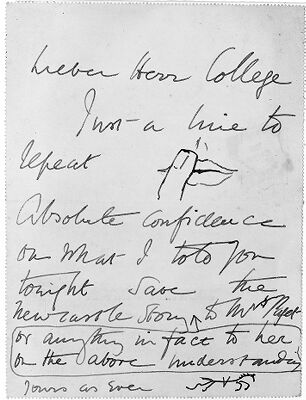 Lieber Herr College
Just a line to
repeat
Absolute confidence
on what I told you
tonight save the
Newcastle story to Mrs
or anything in fact to her
on the above understanding
Yours as Ever